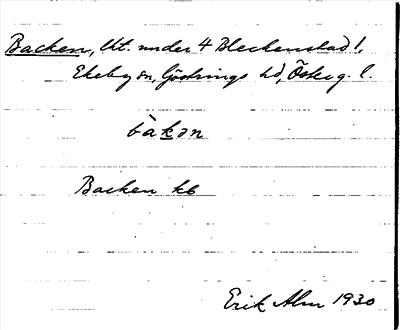 Backen, Ut. under 4 Bleckenstad 1,
Ekeby sn, Göstrings hd, Österg. l.
bàkən
Backen kb
Erik Alm 1930